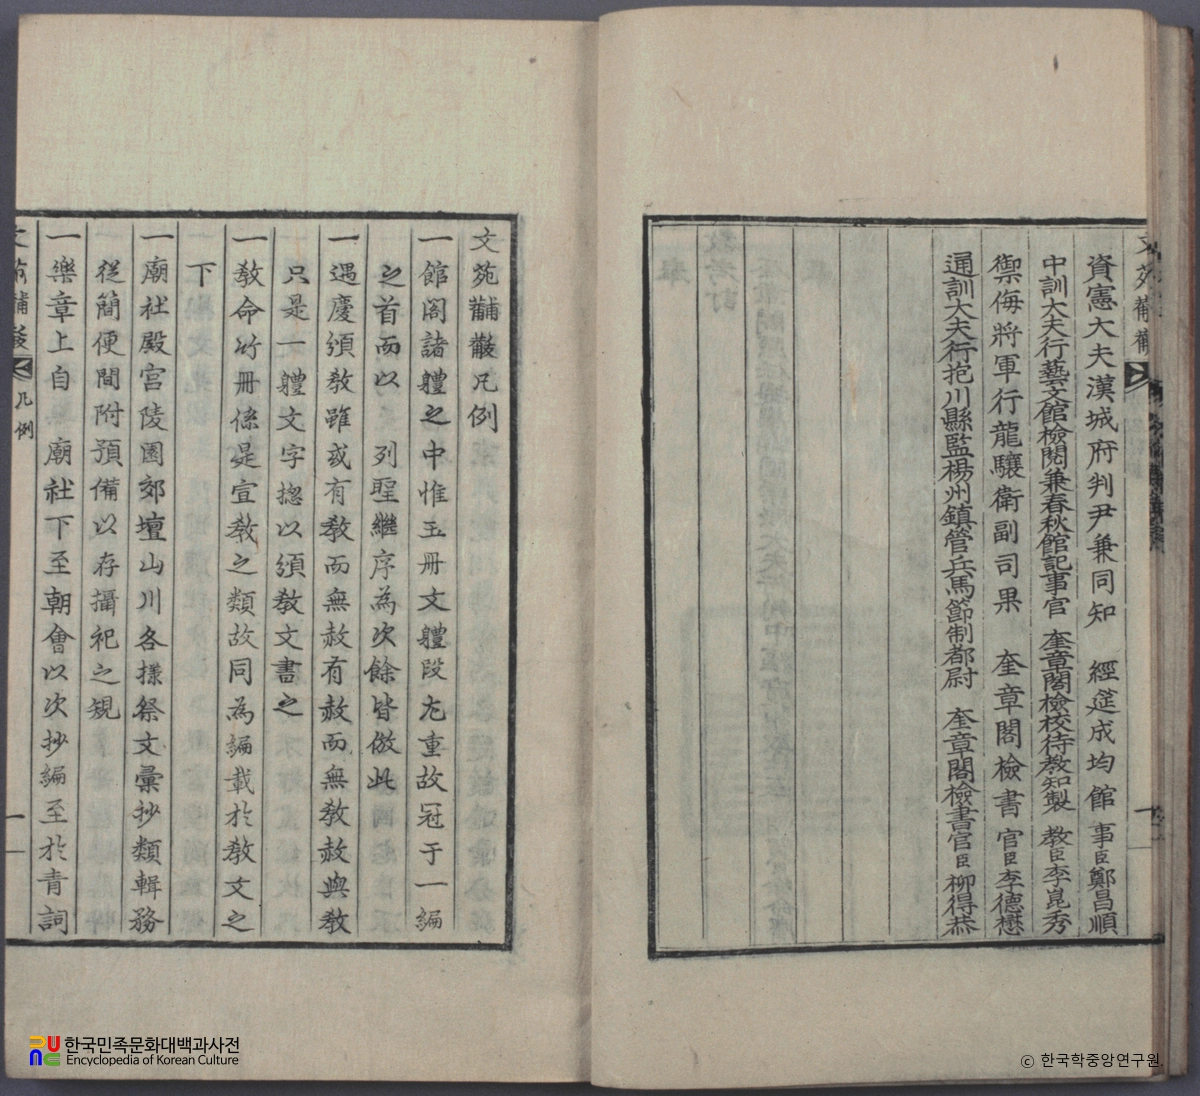 資憲大夫漢城府判尹兼同知 經筵成均館 事臣鄭昌順
中訓大夫行藝文館檢閱兼春秋館記事官 奎章閣檢校待教知製 教臣李崑秀
禦侮將軍行龍驤衛副司果 奎章閣檢書官臣李德懋
通訓大夫行抱川縣監楊州鎮管兵馬節制都尉 奎章閣檢書官臣柳得恭
文苑黼黻凡例
一館閣諸軆之中惟玉册文軆段尤重故冠于一編
之首而以 列聖繼序為次餘皆倣此
一遇慶頒敎雖或有敎而無赦有赦而無敎赦與敎
只是一軆文字捴以頒敎文書之
一敎命竹册係是宣敎之類故同為編載於敎文之
下
一廟社殿宮陵園郊壇山川各㨾祭文彙抄類輯務
從簡便間附預備以存攝祀之規
一樂章上自 廟社下至朝會以次抄編至於青詞
文苑黼黻 凡例
一
한국민족문화대백과사전
Encyclopedia of Korean Culture
ⓒ 한국학중앙연구원.